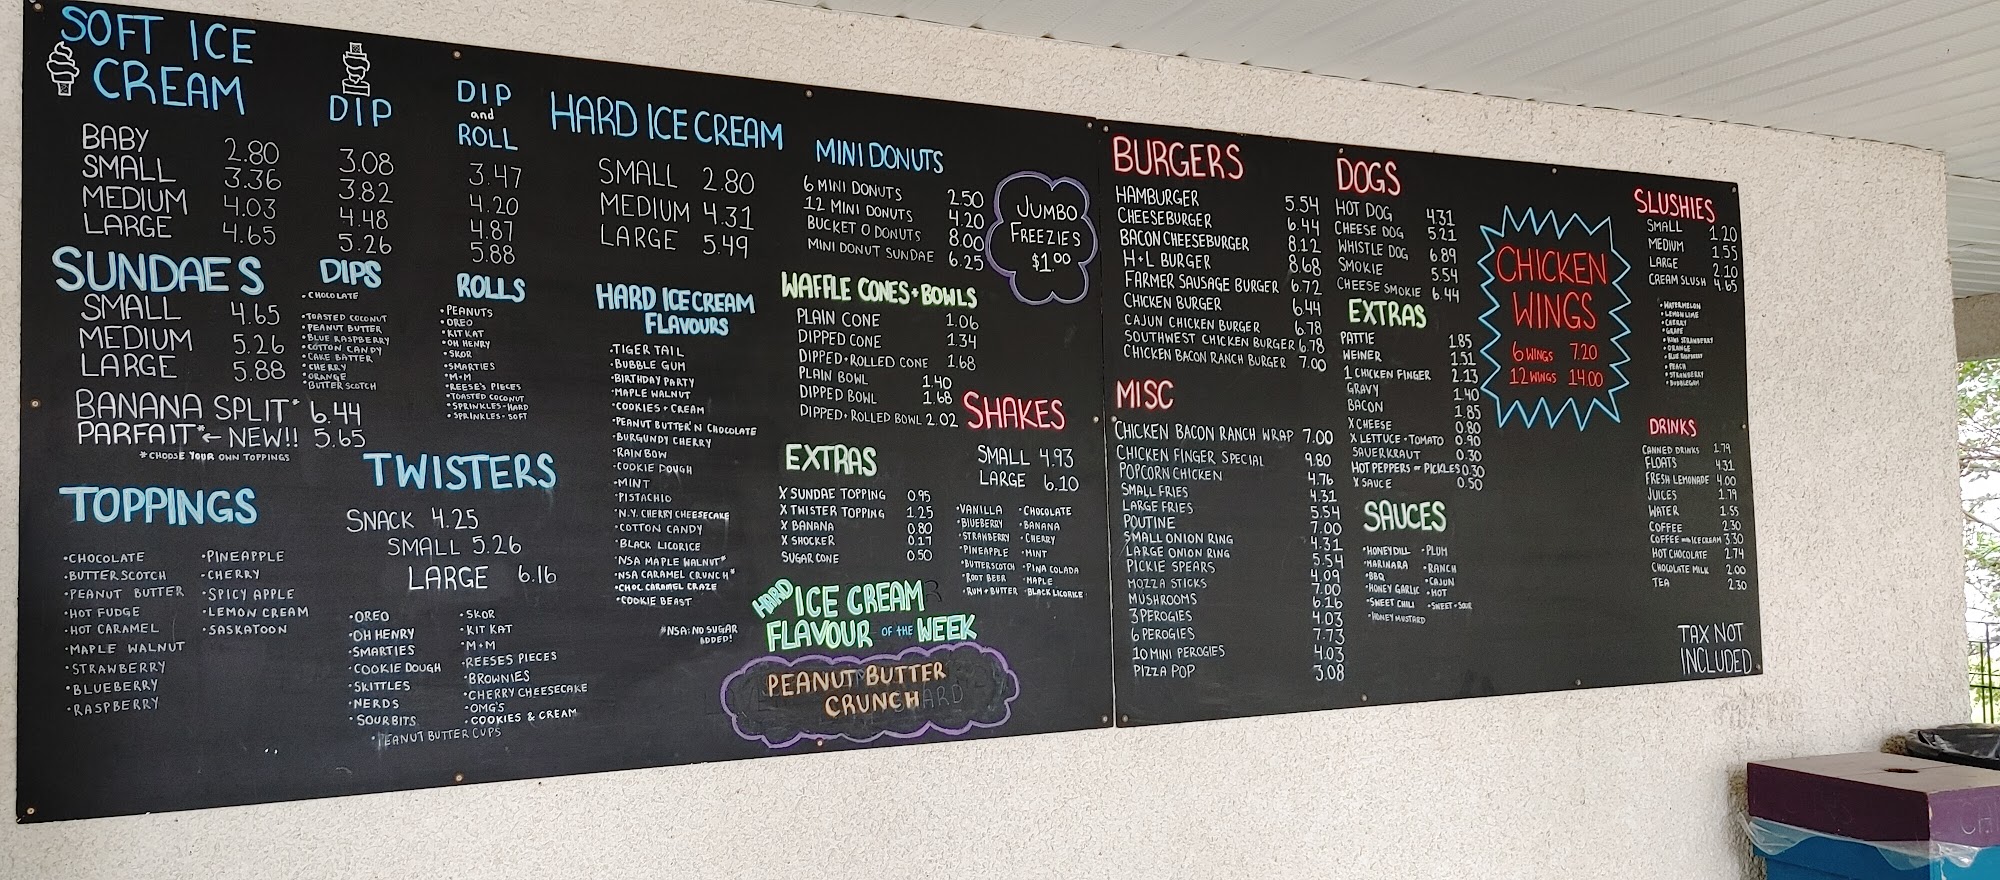 SOFT ICE CREAM
DIP
DIP and ROLL
BABY 2.80 3.08 3.47
SMALL 3.36 3.82 4.20
MEDIUM 4.03 4.48 4.87
LARGE 4.65 5.26 5.88
SUNDAES
SMALL 4.65
MEDIUM 5.26
LARGE 5.88
BANANA SPLIT* 6.44
PARFAIT*← NEW!! 5.65
*CHOOSE YOUR OWN TOPPINGS
DIPS
• CHOCOLATE
• TOASTED COCONUT
• PEANUT BUTTER
• BLUE RASPBERRY
• COTTON CANDY
• CAKE BATTER
• CHERRY
• ORANGE
• BUTTERSCOTCH
ROLLS
• PEANUTS
• OREO
• KIT KAT
• OH HENRY
• SKOR
• SMARTIES
• M+M
• REESE'S PIECES
• TOASTED COCONUT
• SPRINKLES-HARD
• SPRINKLES-SOFT
TOPPINGS
• CHOCOLATE
• BUTTERSCOTCH
• PEANUT BUTTER
• HOT FUDGE
• HOT CARAMEL
• MAPLE WALNUT
• STRAWBERRY
• BLUEBERRY
• RASPBERRY
• PINEAPPLE
• CHERRY
• SPICY APPLE
• LEMON CREAM
• SASKATOON
TWISTERS
SNACK 4.25
SMALL 5.26
LARGE 6.16
• OREO
• OH HENRY
• SMARTIES
• COOKIE DOUGH
• SKITTLES
• NERDS
• SOURBITS
• PEANUT BUTTER CUPS
• SKOR
• KIT KAT
• M+M
• REESES PIECES
• BROWNIES
• CHERRY CHEESECAKE
• OMG'S
• COOKIES & CREAM
HARD ICE CREAM
SMALL 2.80
MEDIUM 4.31
LARGE 5.49
HARD ICE CREAM FLAVOURS
• TIGER TAIL
• BUBBLE GUM
• BIRTHDAY PARTY
• MAPLE WALNUT
• COOKIES + CREAM
• PEANUT BUTTER 'N CHOCOLATE
• BURGUNDY CHERRY
• RAINBOW
• COOKIE DOUGH
• MINT
• PISTACHIO
• N.Y. CHERRY CHEESECAKE
• COTTON CANDY
• BLACK LICORICE
• NSA MAPLE WALNUT*
• NSA CARAMEL CRUNCH*
• CHOC CARAMEL CRAZE
• COOKIE BEAST
*NSA: NO SUGAR ADDED!
MINI DONUTS
6 MINI DONUTS 2.50
12 MINI DONUTS 4.20
BUCKET O DONUTS 8.00
MINI DONUT SUNDAE 6.25
JUMBO
FREEZIES
$1.00
WAFFLE CONES + BOWLS
PLAIN CONE 1.06
DIPPED CONE 1.34
DIPPED+ROLLED CONE 1.68
PLAIN BOWL 1.40
DIPPED BOWL 1.68
DIPPED+ROLLED BOWL 2.02
EXTRAS
X SUNDAE TOPPING 0.95
X TWISTER TOPPING 1.25
X BANANA 0.80
X SHOCKER 0.17
SUGAR CONE 0.50
SHAKES
SMALL 4.93
LARGE 6.10
• VANILLA
• BLUEBERRY
• STRAWBERRY
• PINEAPPLE
• BUTTERSCOTCH
• ROOT BEER
• RUM + BUTTER
• CHOCOLATE
• BANANA
• CHERRY
• MINT
• PINA COLADA
• MAPLE
• BLACK LICORICE
HARD ICE CREAM
FLAVOUR OF THE WEEK
PEANUT BUTTER
CRUNCH
BURGERS
HAMBURGER 5.54
CHEESEBURGER 6.44
BACON CHEESEBURGER 8.12
H+L BURGER 8.68
FARMER SAUSAGE BURGER 6.72
CHICKEN BURGER 6.44
CAJUN CHICKEN BURGER 6.78
SOUTHWEST CHICKEN BURGER 6.78
CHICKEN BACON RANCH BURGER 7.00
MISC
CHICKEN BACON RANCH WRAP 7.00
CHICKEN FINGER SPECIAL 9.80
POPCORN CHICKEN 4.76
SMALL FRIES 4.31
LARGE FRIES 5.54
POUTINE 7.00
SMALL ONION RING 4.31
LARGE ONION RING 5.54
PICKIE SPEARS 4.09
MOZZA STICKS 7.00
MUSHROOMS 6.16
3 PEROGIES 4.03
6 PEROGIES 7.73
10 MINI PEROGIES 4.03
PIZZA POP 3.08
DOGS
HOT DOG 4.31
CHEESE DOG 5.21
WHISTLE DOG 6.89
SMOKIE 5.54
CHEESE SMOKIE 6.44
EXTRAS
PATTIE 1.85
WEINER 1.51
1 CHICKEN FINGER 2.13
GRAVY 1.40
BACON 1.85
X CHEESE 0.80
X LETTUCE • TOMATO 0.90
SAUERKRAUT 0.30
HOT PEPPERS or PICKLES 0.30
X SAUCE 0.50
SAUCES
• HONEYDILL
• MARINARA
• BBQ
• HONEY GARLIC
• SWEET CHILI
• HONEY MUSTARD
• PLUM
• RANCH
• CAJUN
• HOT
• SWEET+SOUR
CHICKEN
WINGS
6 WINGS 7.20
12 WINGS 14.00
SLUSHIES
SMALL 1.20
MEDIUM 1.55
LARGE 2.10
CREAM SLUSH 4.65
• WATERMELON
• LEMON LIME
• CHERRY
• GRAPE
• KIWI STRAWBERRY
• ORANGE
• BLUE RASPBERRY
• PEACH
• STRAWBERRY
• BUBBLEGUM
DRINKS
CANNED DRINKS 1.79
FLOATS 4.31
FRESH LEMONADE 4.00
JUICES 1.79
WATER 1.55
COFFEE 2.30
COFFEE with ICE CREAM 3.30
HOT CHOCOLATE 2.74
CHOCOLATE MILK 2.00
TEA 2.30
TAX NOT
INCLUDED